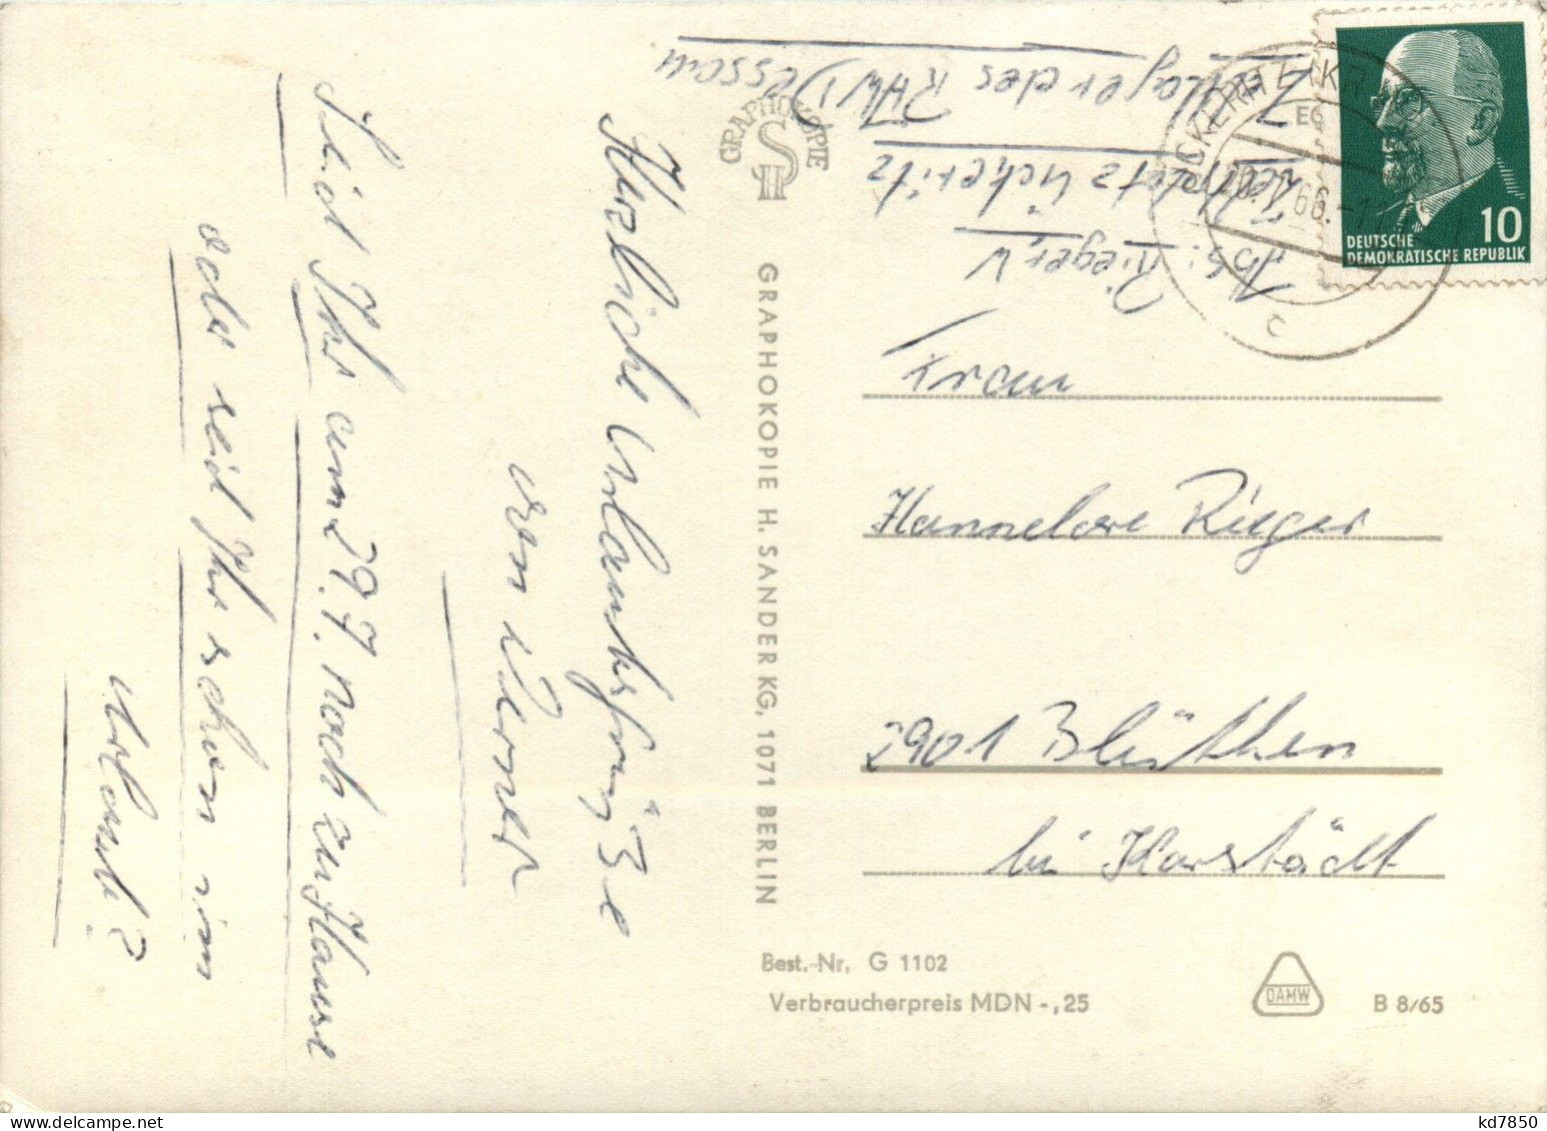 Herzliche Urlaubsgrüße
von Werner
Seid Ihr am 29.7. noch zu Hause
oder seid Ihr schon im
Urlaub?
Abs: Rieger, W
Zeltplatz Ückeritz
Zeltlager des RAW Dessau
Frau
Hannelore Rieger
2901 Blüthen
bei Karstädt
GRAPHOKOPIE
H S
GRAPHOKOPIE H. SANDER KG, 1071 BERLIN
DEUTSCHE
DEMOKRATISCHE REPUBLIK
10
66.-11
c
Best.-Nr. G 1102
Verbraucherpreis MDN -,25
DAMW
B 8/65
delcampe.net
kd7850